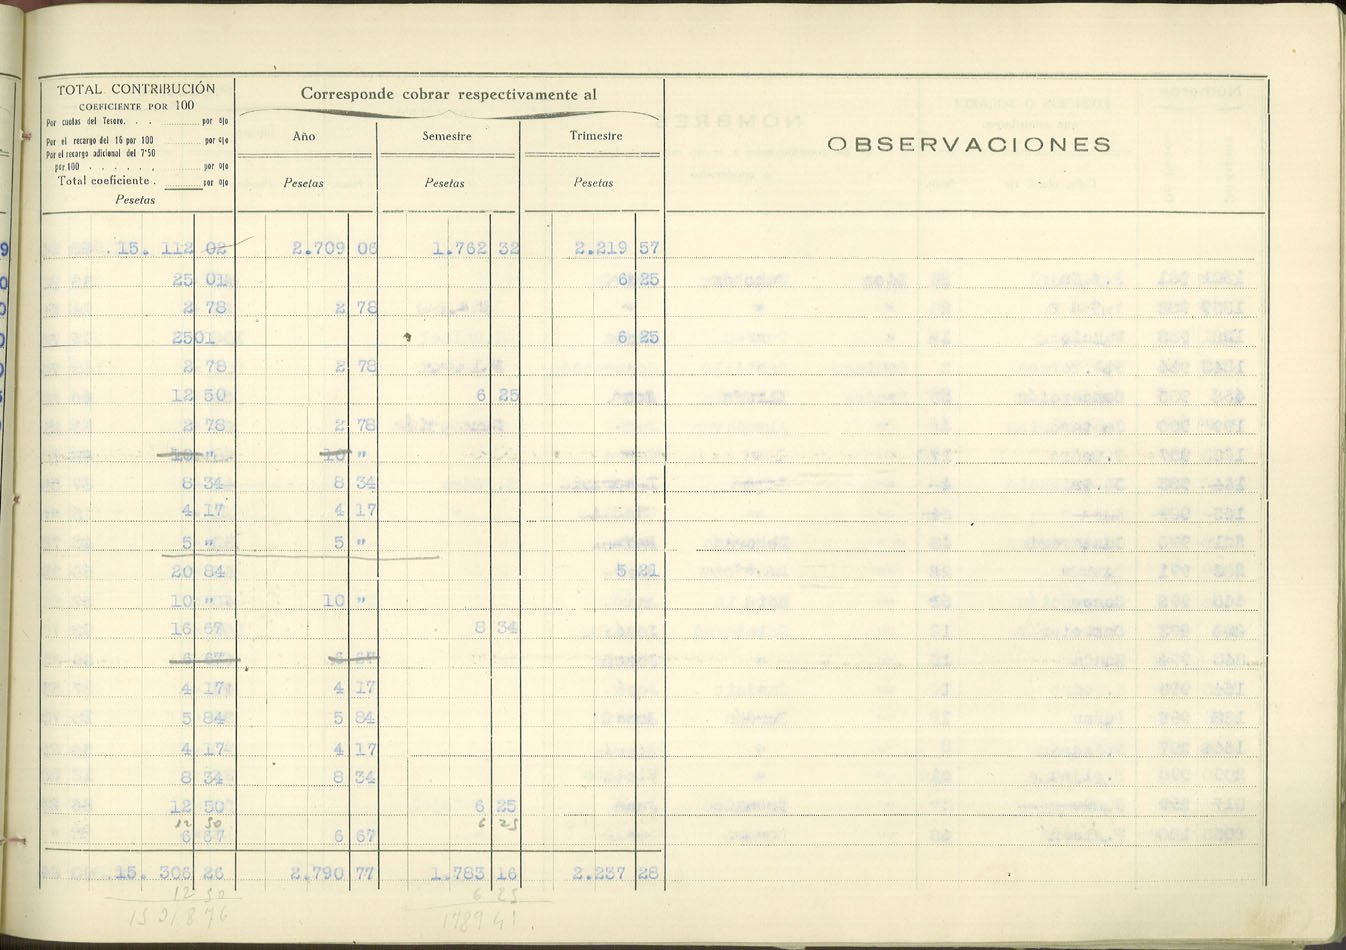 TOTAL CONTRIBUCIÓN
COEFICIENTE POR 100
Por cuotas del Tesoro. . . por 0|0
Por el recargo del 16 por 100 por 0|0
Por el recargo adicional del 7'50
por 100 . . . . . . por 0|0
Total coeficiente . por 0|0
Pesetas
Corresponde cobrar respectivamente al
Año Semestre Trimestre
Pesetas Pesetas Pesetas
OBSERVACIONES
15. 112 02 2.709 06 1.762 32 2.219 57
25 01 6 25
2 78 2 78
25 01 6 25
2 78 2 78
12 50 6 25
2 78 2 78
10 " 10 "
8 34 8 34
4 17 4 17
5 " 5 "
20 84 5 21
10 " 10 "
16 67 8 34
6 67 6 67
4 17 4 17
5 84 5 84
4 17 4 17
8 34 8 34
12 50 6 25
12 50 6 25
6 67 6 67
15. 306 26 2.790 77 1.783 16 2.237 28
12 50 6 25
15318 76 1789 41.